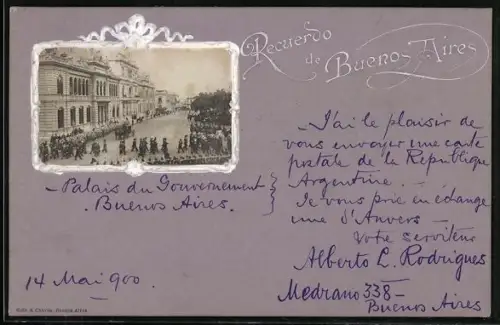 Recuerdo
de Buenos Aires
J'ai le plaisir de
vous envoyer une carte
postale de la République
Argentine. —
Je vous prie en échange
une d'Anvers —
Votre serviteur
Alberto L. Rodrigues
Medrano 338 —
Buenos Aires
— Palais du Gouvernement
. Buenos Aires.
14 Mai 900